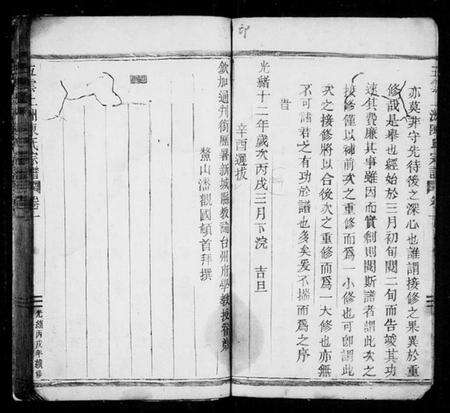 亦莫非守先待後之深心也雖謂接修之果異於重
修設是舉也經始於三月初旬閱二旬而告竣其功
速其費廉其事雖因而實創則閱斯譜者謂此次之
接修僅以補前次之重修而爲一小修也可卽謂此
次之接修將以合後次之重修而爲一大修也亦無
不可諸君之有功於譜也多矣爰不揣而爲之序
旹
光緒十二年歲次丙戌三月下浣 吉旦
辛酉選拔
欽加通判銜歷署新城縣教諭台州府學教授
鰲山潘觀國頓首拜撰
氏宗譜 卷一
光緒丙戌年續修